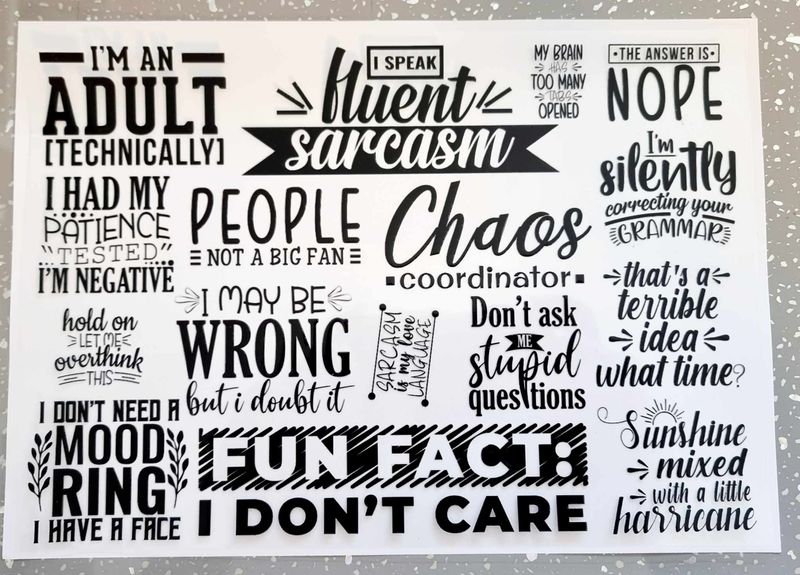 I'M AN
ADULT
[TECHNICALLY]
I SPEAK
fluent
sarcasm
MY BRAIN
HAS
TOO MANY
TABS
OPENED
•THE ANSWER IS•
NOPE
I HAD MY
PATIENCE
"TESTED"
I'M NEGATIVE
PEOPLE
NOT A BIG FAN
Chaos
coordinator
I'm
silently
correcting your
GRAMMAR
hold on
LET ME
overthink
THIS
I MAY BE
WRONG
but i doubt it
SARCASM
is my love
LANGUAGE
Don't ask
ME
stupid
questions
that's a
terrible
idea
what time?
I DON'T NEED A
MOOD
RING
I HAVE A FACE
FUN FACT:
I DON'T CARE
Sunshine
mixed
with a little
harricane